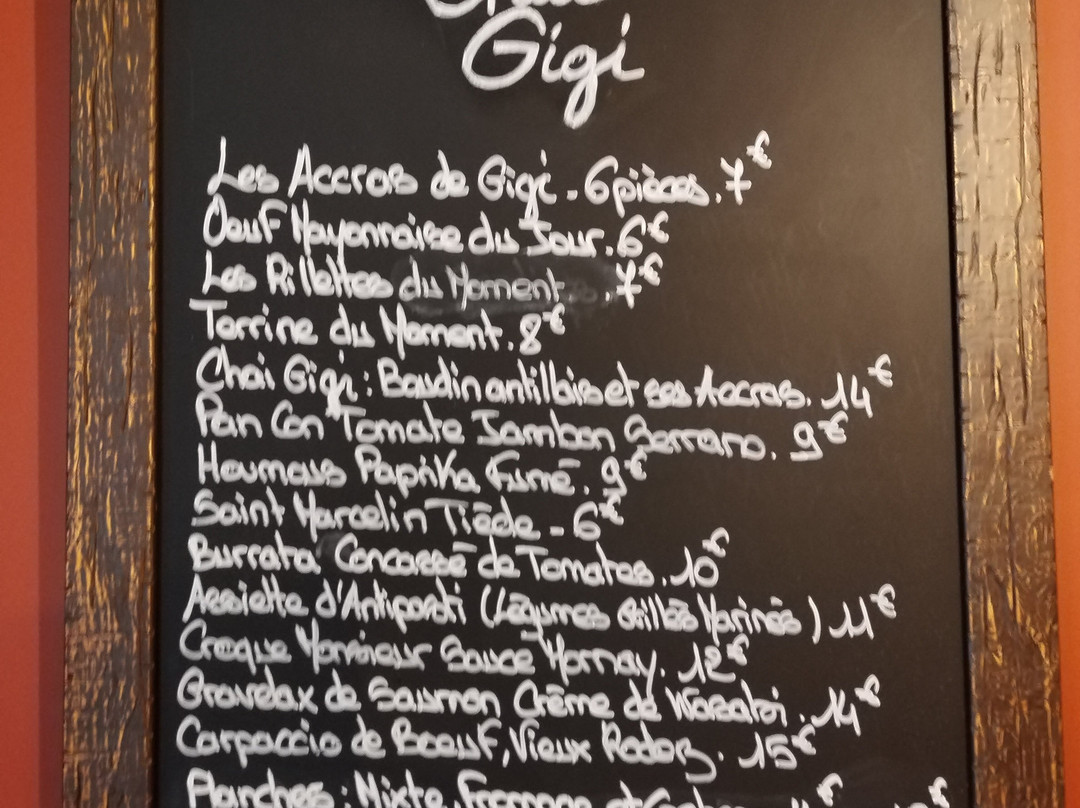 Gigi
Les Accras de Gigi - 6 pièces. 7€
Oeuf Mayonnaise du Jour. 6€
Les Rillettes du Moment . 7€
Terrine du Moment. 8€
Chai Gigi : Boudin antillais et ses Accras. 14€
Pan Con Tomate Jambon Serrano. 9€
Houmous Paprika Fumé. 9€
Saint Marcelin Tiède - 6€
Burrata Concassé de Tomates. 10€
Assiette d'Antipasti (Légumes Grillés Marinés) 11€
Croque Monsieur Sauce Mornay. 12€
Gravelax de Saumon Crème de Wasabi. 14€
Carpaccio de Boeuf, Vieux Rodez. 15€
Planches : Mixte, Fromage et